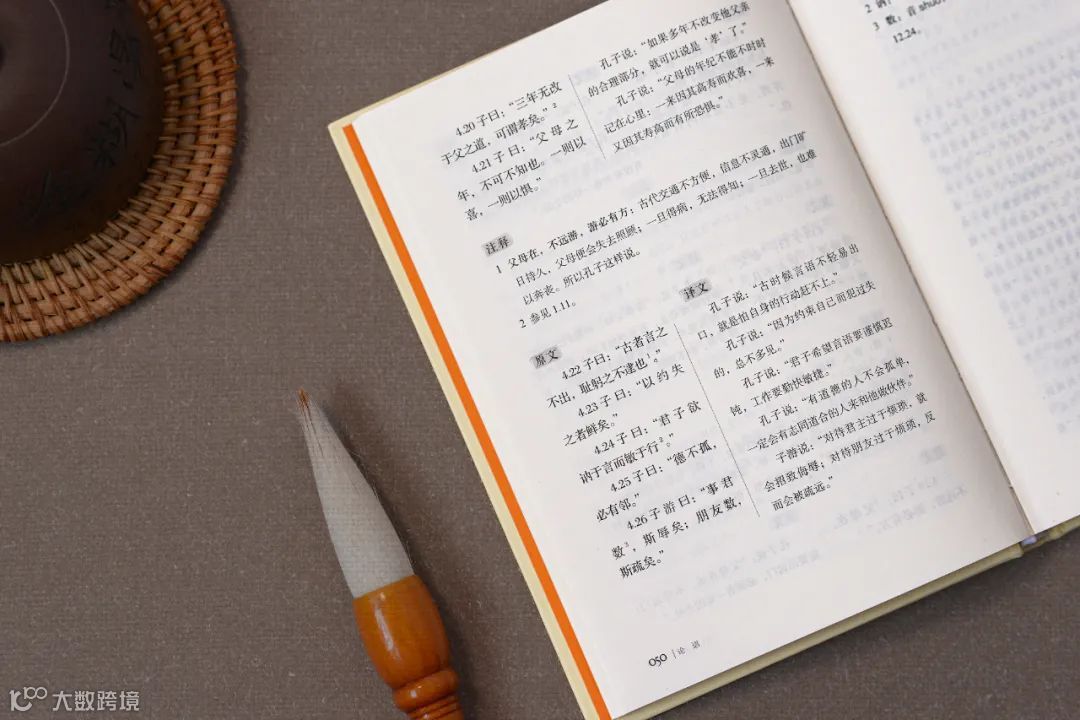 4.20子曰：“三年无改
于父之道，可谓孝矣。”²
4.21子曰：“父母之
年，不可不知也。一则以
喜，一则以惧。”
孔子说：“如果多年不改变他父亲
的合理部分，就可以说是‘孝’了。”
孔子说：“父母的年纪不能不时时
记在心里：一来因其高寿而欢喜，一来
又因其寿高而有所恐惧。”
注释
1 父母在，不远游，游必有方：古代交通不方便，信息不灵通，出门旷
日持久，父母便会失去照顾；一旦得病，无法得知；一旦去世，也难
以奔丧。所以孔子这样说。
2 参见1.11。
原文
4.22子曰：“古者言之
不出，耻躬之不逮也¹。”
4.23子曰：“以约失
之者鲜矣。”
4.24子曰：“君子欲
讷于言而敏于行²。”
4.25子曰：“德不孤，
必有邻。”
4.26子游曰：“事君
数³，斯辱矣；朋友数，
斯疏矣。”
译文
孔子说：“古时候言语不轻易出
口，就是怕自身的行动赶不上。”
孔子说：“因为约束自己而犯过失
的，总不多见。”
孔子说：“君子希望言语要谨慎迟
钝，工作要勤快敏捷。”
孔子说：“有道德的人不会孤单，
一定会有志同道合的人来和他做伙伴。”
子游说：“对待君主过于烦琐，就
会招致侮辱；对待朋友过于烦琐，反
而会被疏远。”
050 论 语
2 讷：
3 数：音shuò，
12.24。
大数跨境